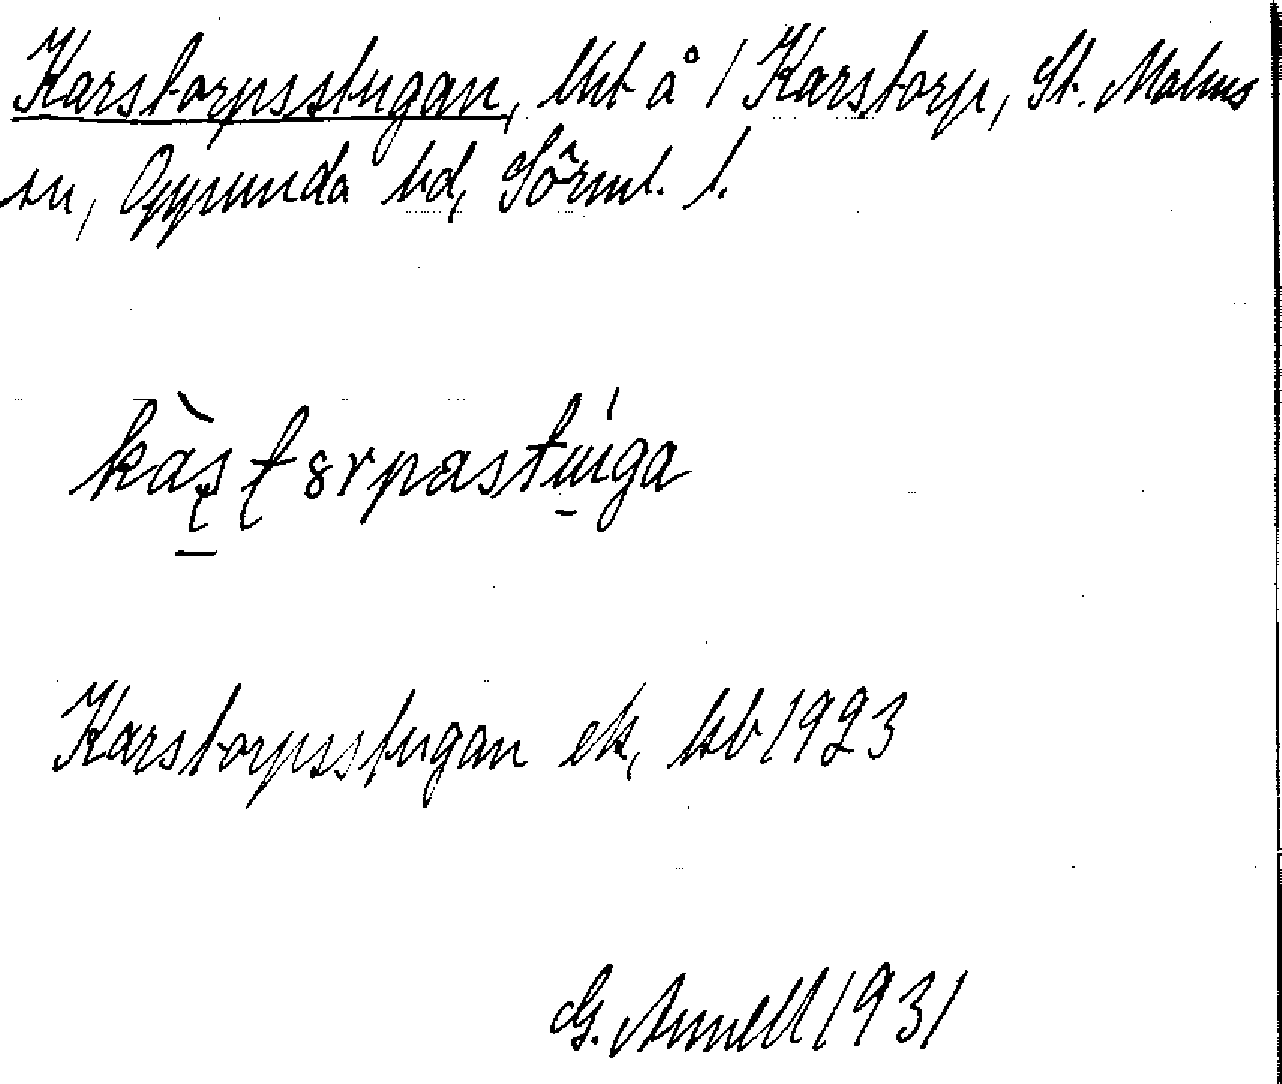 Karstorpsstugan, lht å 1 Karstorp, St. Malms
sn, Oppunda hd, Sörml. l.
kàʂʈ8rpastúga
Karstorpsstugan ek, kb 1923
G. Annell 1931